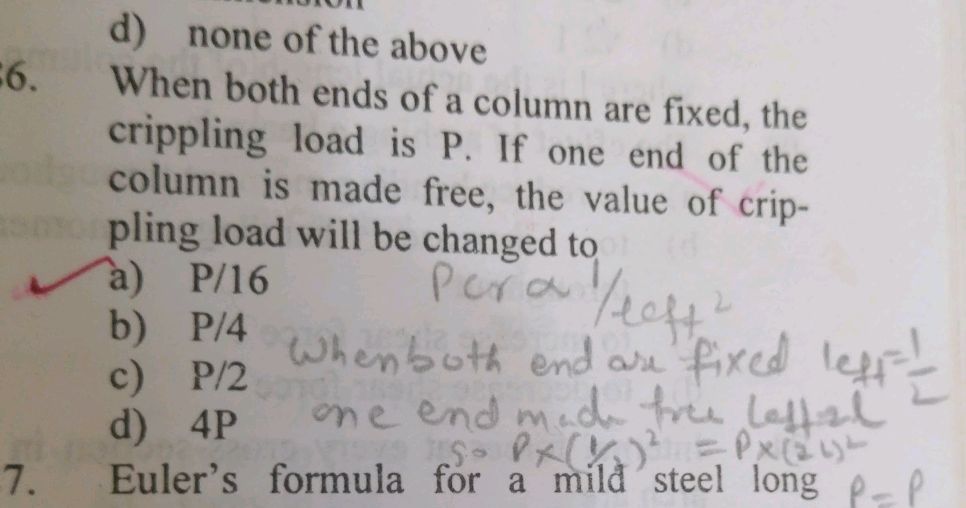 d) none of the above
6. When both ends of a column are fixed, the
crippling load is P. If one end of the
column is made free, the value of crip-
pling load will be changed to
a) P/16
b) P/4
c) P/2
d) 4P
Pcr α 1/leff²
When both end are fixed leff = L/2
one end made free leff = 2L
7. Euler's formula for a mild steel long